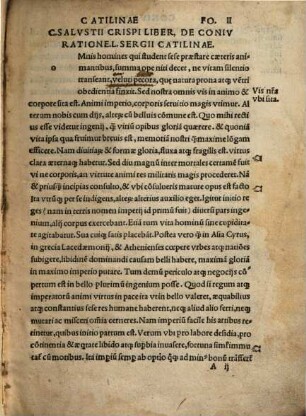 CATILINAE FO. II
C. SALVSTII CRISPI LIBER, DE CONIV
RATIONE L. SERGII CATILINAE.
Mnis homines qui student sese præstare cæteris ani
o mantibus, summa ope niti decet, ne vitam silentio
transeant, veluti pecora, quæ natura prona atq; vẽtri
obedientia finxit. Sed nostra omnis vis in animo &
Vis nra
vbi sita.
corpore sita est. Animi imperio, corporis servitio magis vtimur. Al
terum nobis cum dijs, alterum cum beluis cõmune est. Quo mihi recti
us esse videtur ingenij, q̃ viriũ opibus gloriã quærere, & quoniã
vita ipsa qua fruimur brevis est, memoriã nostri q̃maxime lõgam
efficere. Nam divitiarũ & formæ gloria, fluxa atq; fragilis est, virtus
clara æternaq; habetur. Sed diu magnũ inter mortales certamẽ fuit
vi ne corporis, an virtute animi res militaris magis procederet. Nã
& priusq̃ incipias consulto, & vbi cõsulueris mature opus est facto
Ita vtrũq; per se indigens, alterum alterius auxilio eget. Igitur initio re
ges (nam in terris nomen imperij id primũ fuit) diversi pars inge
nium, alij corpus exercebant. Etiã tum vita hominũ sine cupidita
te agitabatur. Sua cuiq; satis placebãt. Postea vero q̃ in Asia Cyrus,
in grecia Lacedæmonij, & Athenienses cœpere vrbes atq; nationes
subigere, libidinẽ dominandi causam belli habere, maximã gloriã
in maximo imperio putare. Tum demũ periculo atq; negocijs cõ
pertum est in bello plurimũ ingenium posse. Quod si regum atq;
imperatorũ animi virtus in pace ita vt in bello valeret, æquabilius
atq; constantius sese res humanæ haberent, neq; aliud alio ferri, neq;
mutari ac misceri omnia cerneres. Nam imperiũ facile his artibus re
tinetur, quibus initio partum est. Verum vbi pro labore desidia, pro
cõtinentia & æquitate libido atq; suphia invasere, fortuna simul immu
tat cũ moribus. Ita impiũ semp ad optimũ quẽq; ad min⁹ bonũ trãsfert
A ij